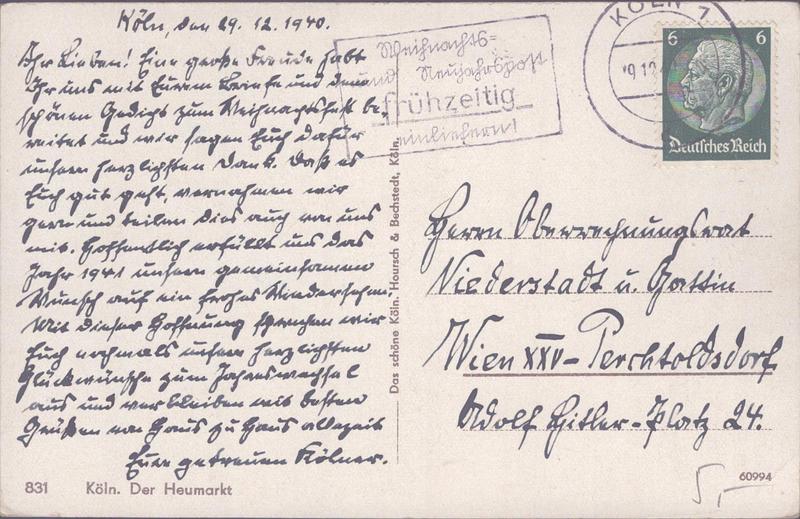 Köln, den 29. 12. 1940.
Ihr Lieben! Eine große Freude habt
Ihr uns mit Eurem Briefe und dem
schönen Gedicht zum Weihnachtsfest be-
reitet und wir sagen Euch dafür
unsern herzlichsten Dank. Daß es
Euch gut geht, vernahmen wir
gern und teilen dies auch von uns
mit. Hoffentlich erfüllt uns das
Jahr 1941 unsern gemeinsamen
Wunsch auf ein frohes Wiedersehn.
Mit dieser Hoffnung sprechen wir
Euch nochmals unsern herzlichsten
Glückwünsche zum Jahreswechsel
aus und verbleiben mit besten
Grüßen von Haus zu Haus allezeit
Eure getreuen Kölner.
831 Köln. Der Heumarkt
Das schöne Köln. Hoursch & Bechstedt, Köln.
Weihnachts-
und Neujahrspost
frühzeitig
einliefern!
KÖLN 7
6 6
Deutsches Reich
Herrn Oberrechnungsrat
Niederstadt u. Gattin
Wien XXV - Perchtoldsdorf
Adolf Hitler-Platz 24.
5,-
60994